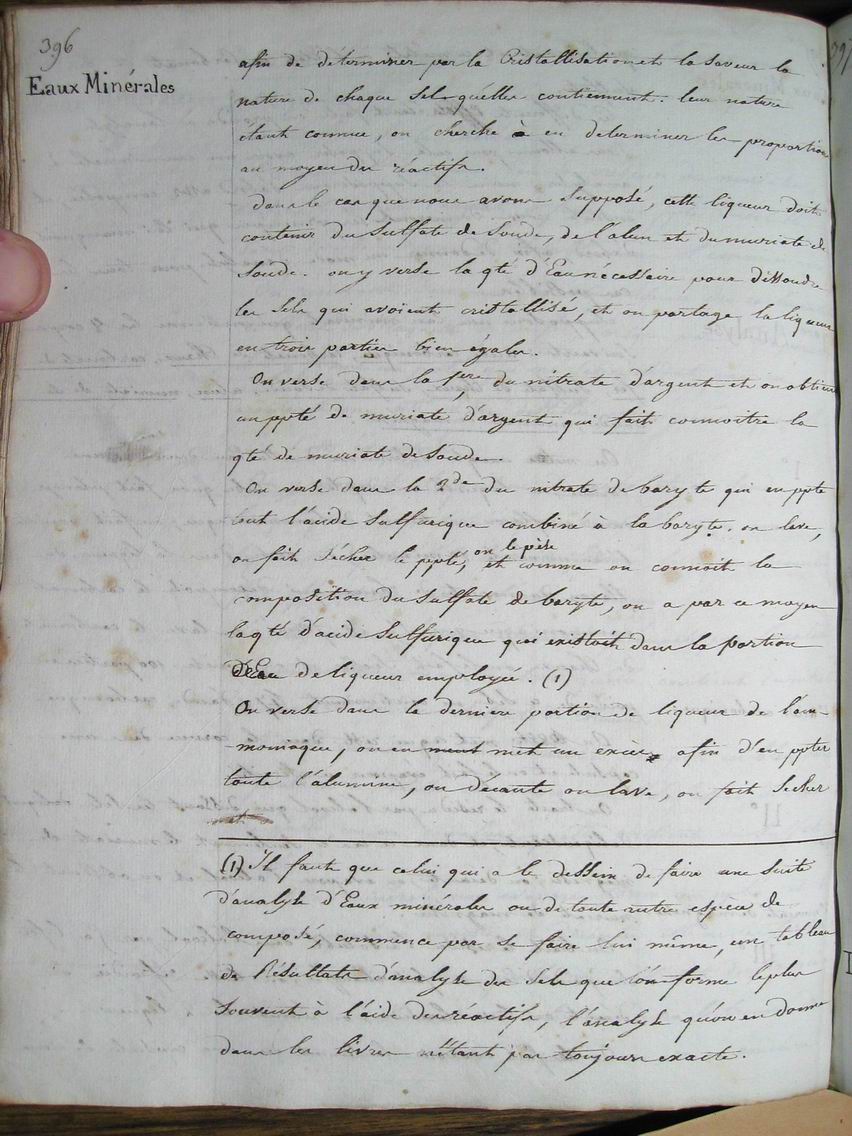 396
Eaux Minérales
afin de déterminer par la Cristallisation et la Saveur la
nature de chaque Sel qu'elles contiennent. leur nature
étant connue, on cherche à en determiner les proportions
au moyen des réactifs.
Dans le cas que nous avons Supposé, cette liqueur doit
contenir du Sulfate de Soude, de l'alun et du muriate de
Soude. on y verse la qté d'Eau nécessaire pour dissoudre
les Sels qui avoient cristallisé, et on partage la liqueur
en trois parties bien égales.
On verse dans la 1ere du nitrate d'argent et on obtient
un ppté de muriate d'argent qui fait connoitre la
qté de muriate de Soude.
On verse dans la 2de du nitrate de baryte qui en ppte
tout l'acide Sulfurique combiné à la baryte. on lave,
on fait Sécher le ppté, on le pèse et comme on connoit la
composition du Sulfate de baryte, on a par ce moyen
la qté d'acide Sulfurique qui existoit dans la portion
de liqueur employée. (1)
On verse dans la derniere portion de liqueur de l'am-
moniaque, on en met un excès afin d'en ppter
toute l'alumine, on décante on lave, on fait Secher
(1) Il faut que celui qui a le dessein de faire une Suite
d'analyse d'Eaux minérales ou de toute autre espèce de
composé, commence par se faire lui même, un tableau
de Résultats d'analyse des Sels que l'on forme le plus
Souvent à l'aide des réactifs, l'analyse qu'on en donne
dans les livres n'étant pas toujours exacte.